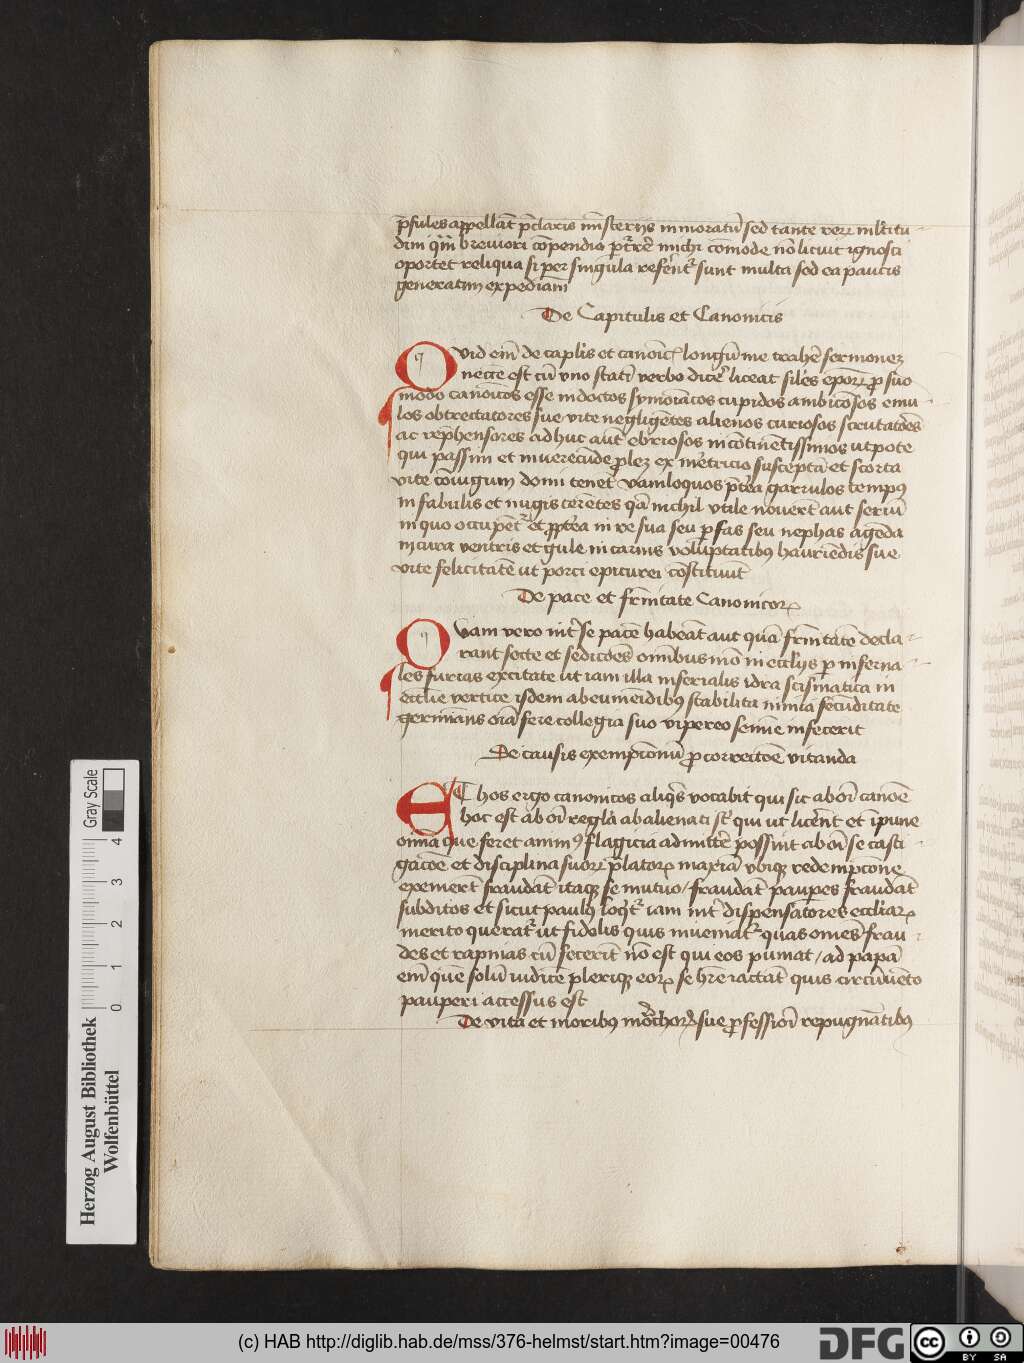 p̄sules appellāt p̄claris mīsteriis inmoratū sed tante reꝝ mltitu-
dini q̄m̄ breviori cōpendio michi cōmode nō licuit ignosci
oportet reliqua si per singula refērent᷑ sunt multa sed ea paucis
generatim expediam
De Capitulis et Canonicis
Quid em̄ de caplis et canoīc longū me trahe᷑ sermonez
necc̄e est cū uno stati᷑ verbo dice᷑ liceat siles epoꝝ ꝓ suo
modo canōicos esse indoctos symoīacos cupidos ambicōsos emu-
los obtrectatores sue vite negligētes alienos curiosos scrutatōes
ac rep̄hensores adhuc aut᷑ ebriosos incōtinētissimos utpote
qui passim et inverecūde ꝓlez ex me᷑tricio susceptā et scorta
vite cōiugum domi tenēt vaniloquos p̄te᷑a garrulos tempꝯ
in fabulis et nugis terētes q̄a nichil utile novert̄ aut seriū
in quo occupēt᷑ et ꝓpte᷑a in re sua seu ꝑ fas seu nephas agēda
in cura ventris et gule in carnis voluptatibꝯ hauriēdis sue
vite felicitatē ut porci epicurei cōstituūt
De pace et frn̄itate Canonicoꝝ
Quam vero int᷑ se pacē habeāt aut quā frn̄itatē decla-
rant secte et sedicōes om̄ibus mō in ecclīis ꝑ inferna-
les furias excitate ut iam illa infernalis idra scismatica in
eccl̄ie vertice iisdem ab eumēidibꝯ stabilita nimia fecūditate
germinans oīa fere collegia suo vipereo semīe infecerit
De causis exempcionū ꝓ correctōe vitanda
Et hos ergo canonicos aliq̄s vocabit qui sic ab oī canōe
hoc est ab oī regla abalienati st̄ qui ut licēnt et īpune
oīnia que feret animꝯ flagicia admitte᷑ possint ab oī se casti-
gacōe et disciplina suoꝝ p̄latoꝝ maxīa ubiqꝫ redempcione
exemert̄ fraudāt itaqꝫ se mutuo / fraudāt pauꝑes fraudāt
subditos et sicut paulꝯ loqt᷑ iam int᷑ dispensatores eccl̄iaꝝ
merito querāt᷑ ut fidelis quis inveniat᷑ quas omēs frau-
des et rapinas cū fecerit̄ nō est qui eos puniat / ad papā
em̄ quē solū iudicē pleriqꝫ eoꝝ se hr̄e iactāt quis circūvēto
pauperi accessus est
De vita et moribꝯ mōchoꝝ sue ꝓfessioī repugnātibꝯ
Herzog August Bibliothek
Wolfenbüttel
Gray Scale
0 1 2 3 4
(c) HAB http://diglib.hab.de/mss/376-helmst/start.htm?image=00476
DFG
cc BY SA